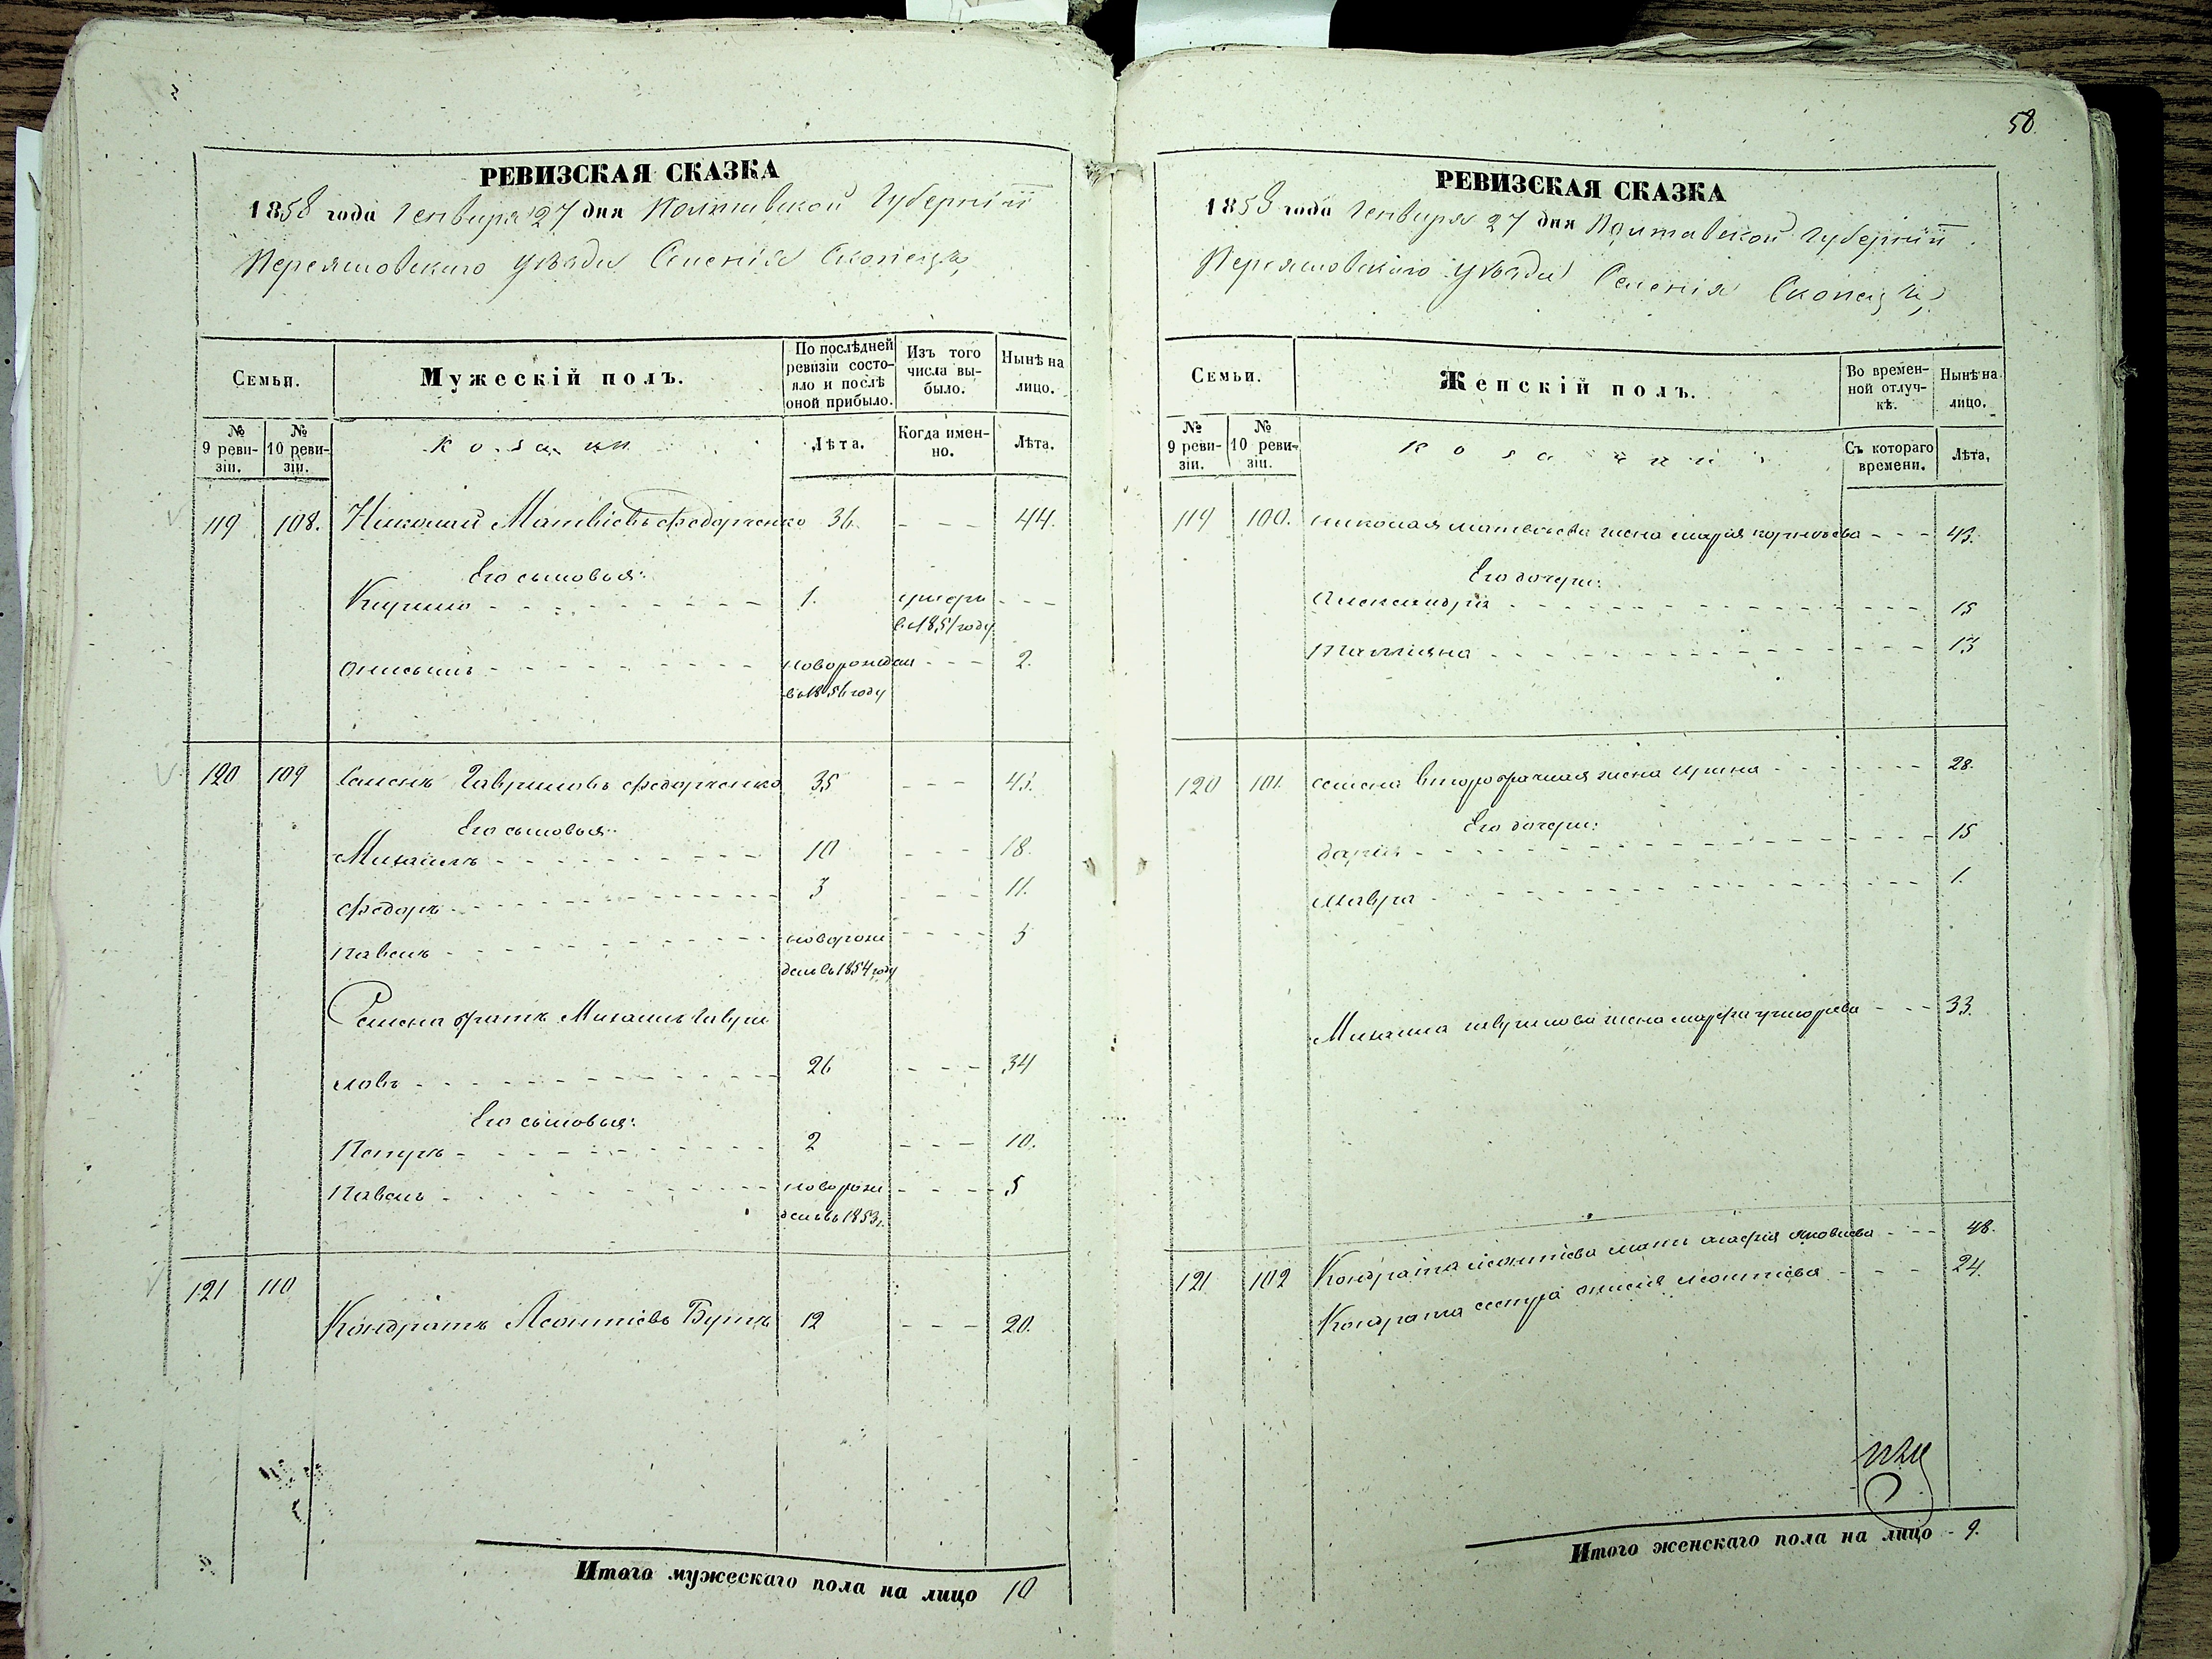 РЕВИЗСКАЯ СКАЗКА
1858 года Генваря 27 дня Полтавской Губерніи
Переяславскаго уѣзда Селенія Скопецъ
Семьи.
Мужескій полъ.
По послѣдней ревизіи состояло и послѣ оной прибыло.
Изъ того числа выбыло.
Нынѣ на лицо.
№ 9 ревизіи.
№ 10 ревизіи.
Козаки
Лѣта.
Когда именно.
Лѣта.
119 108. Николай Матвіевъ Федорченко 36 - - - 44.
Его сыновья:
Кирило - - - 1. умеръ - - -
въ 1851 году
Онисимъ - - - новорожден - - - 2.
въ 1856 году
120 109 Семенъ Гавриловъ Федорченко 35 - - - 43.
Его сыновья:
Михаилъ - - - 10 - - - 18.
Федоръ - - - 3 - - - 11.
Павелъ - - - новорож - - - 3
денъ въ 1854 году
Семена братъ Михаилъ Гаври
ловъ - - - 26 - - - 34
Его сыновья:
Петръ - - - 2 - - - 10.
Павелъ - - - новорож - - - 5
денъ въ 1853 г.
121 110
Кондратъ Леонтіевъ Бутъ 12 - - - 20.
Итого мужескаго пола на лицо 10
58
РЕВИЗСКАЯ СКАЗКА
1858 года Генваря 27 дня Полтавской Губерніи
Переяславскаго уѣзда Селенія Скопецъ
Семьи.
Женскій полъ.
Во временной отлучкѣ.
Нынѣ на лицо.
№ 9 ревизіи.
№ 10 ревизіи.
Козачки
Съ котораго времени.
Лѣта.
119 100. Николая Матвѣева жена Марія Корнѣева - - - 43.
Его дочери:
Александра - - - 15
Татіяна - - - 13
120 101. Семена второбрачная жена Ирина - - - 28.
Его дочери:
Дарія - - - 15
Мавра - - - 1.
Михаила Гаврилова жена Марфа - - - 33.
121 102 Кондрата Леонтіева мать Агафія Яковлева - - - 48.
Кондрата сестра Леонтіева - - - 24.
Итого женскаго пола на лицо - 9.